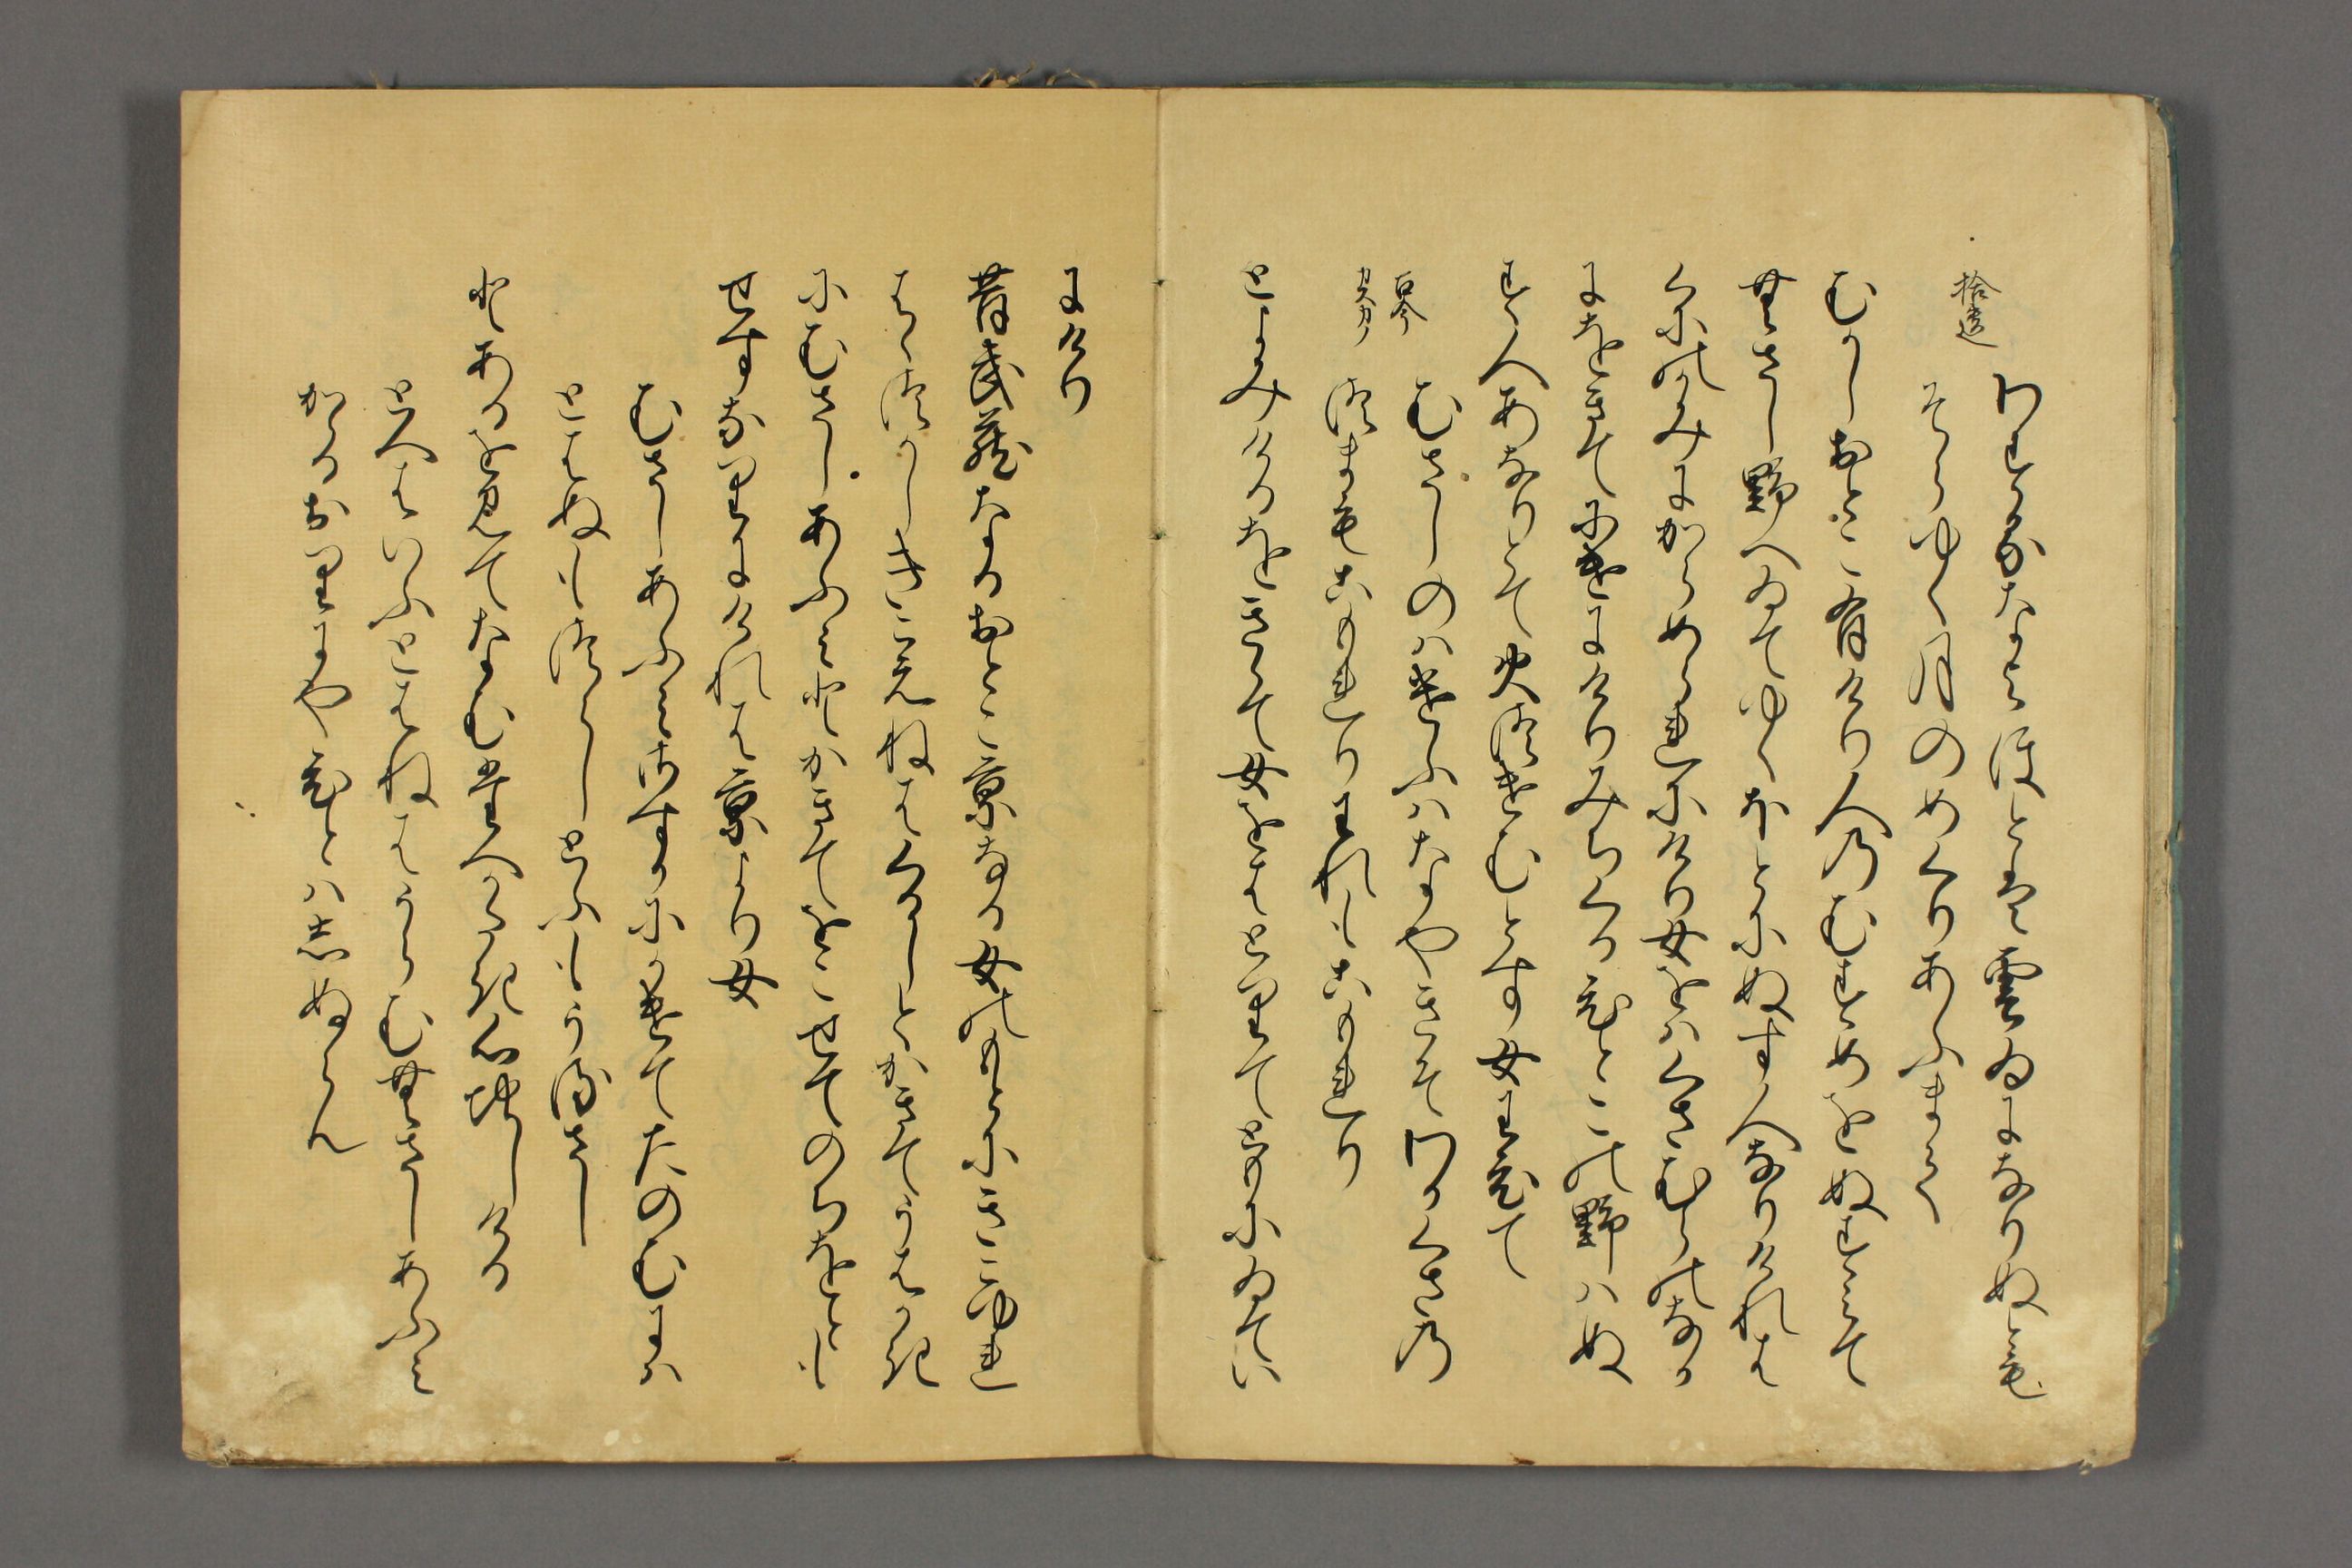 拾遺
わするなよほとは雲ゐになりぬとも
そらゆく月のめくりあふまて
むかしおとこ有けり人のむすめをぬすみて
むさし野へゐてゆくほとにぬす人なりけれは
くにのかみにからめられにけり女をはくさむらのなか
にをきてにけにけりみちくる人この野はぬ
す人あなりとて火つけむとす女わひて
古今
むさしのはけふはなやきそわかくさの
よみ人しらす
つまもこもれりわれもこもれり
とよみけるをきゝて女をはとりてともにゐてい
にけり
昔武蔵なるおとこ京なる女のもとにきこゆれ
ははつかしきこえねはくるしとかきてうはかき
にむさしあふみとかきてをこせてのちをとも
せすなりにけれは京より女
むさしあふみさすかにかけてたのむには
とはぬもつらしとふもうるさし
とあるを見てなむたへかたき心地しける
とへはいふとはねはうらむむさしあふみ
かゝるおりにや人はしぬらん